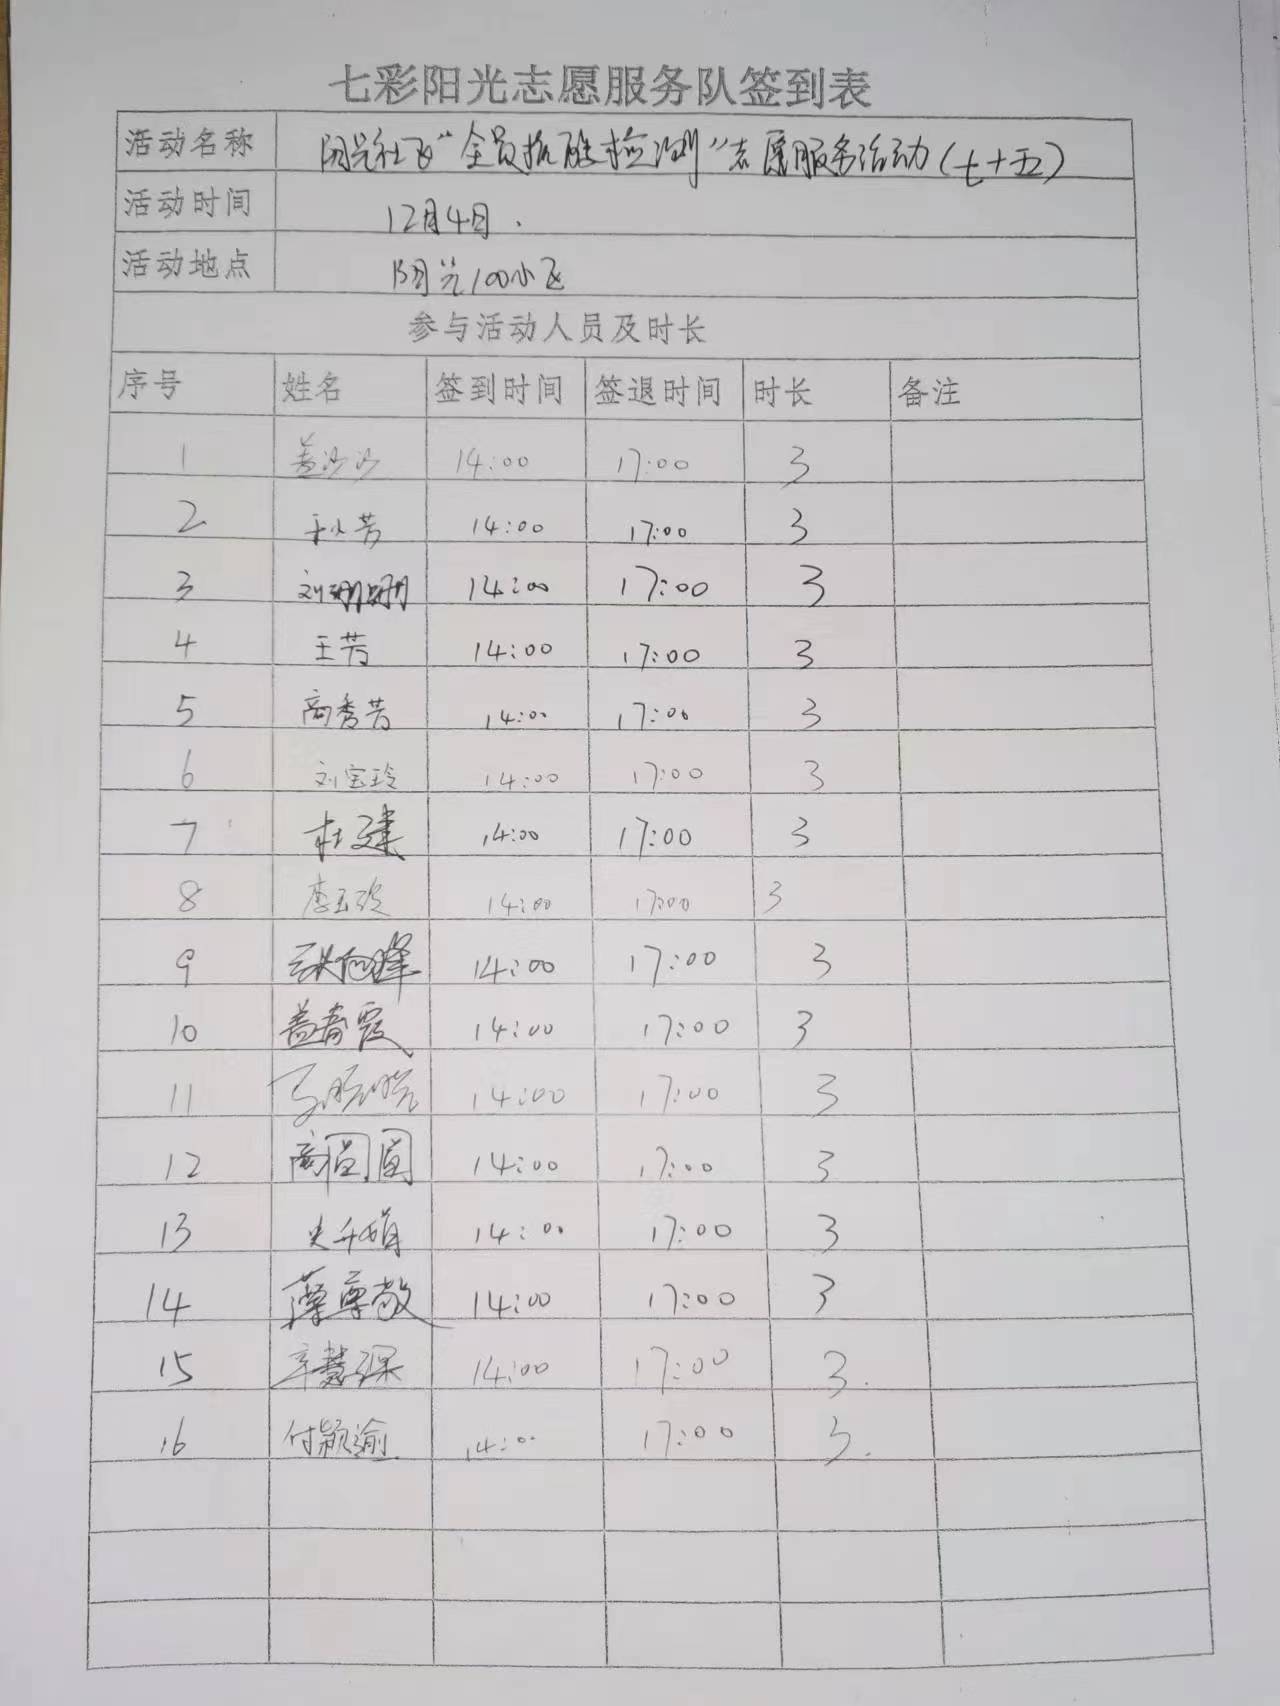 七彩阳光志愿服务队签到表
活动名称 阳光社区"全员核酸检测"志愿服务活动(七十五)
活动时间 12月4日.
活动地点 阳光100小区
参与活动人员及时长
序号 姓名 签到时间 签退时间 时长 备注
1 盖沙沙 14:00 17:00 3
2 于小芳 14:00 17:00 3
3 刘珊珊 14:00 17:00 3
4 王芳 14:00 17:00 3
5 商秀芳 14:00 17:00 3
6 刘宝玲 14:00 17:00 3
7 杜建 14:00 17:00 3
8 李玉玲 14:00 17:00 3
9 14:00 17:00 3
10 盖春霞 14:00 17:00 3
11 14:00 17:00 3
12 商圆圆 14:00 17:00 3
13 14:00 17:00 3
14 薄尊敬 14:00 17:00 3
15 辛慧琛 14:00 17:00 3.
16 付颖逾 14:00 17:00 3.